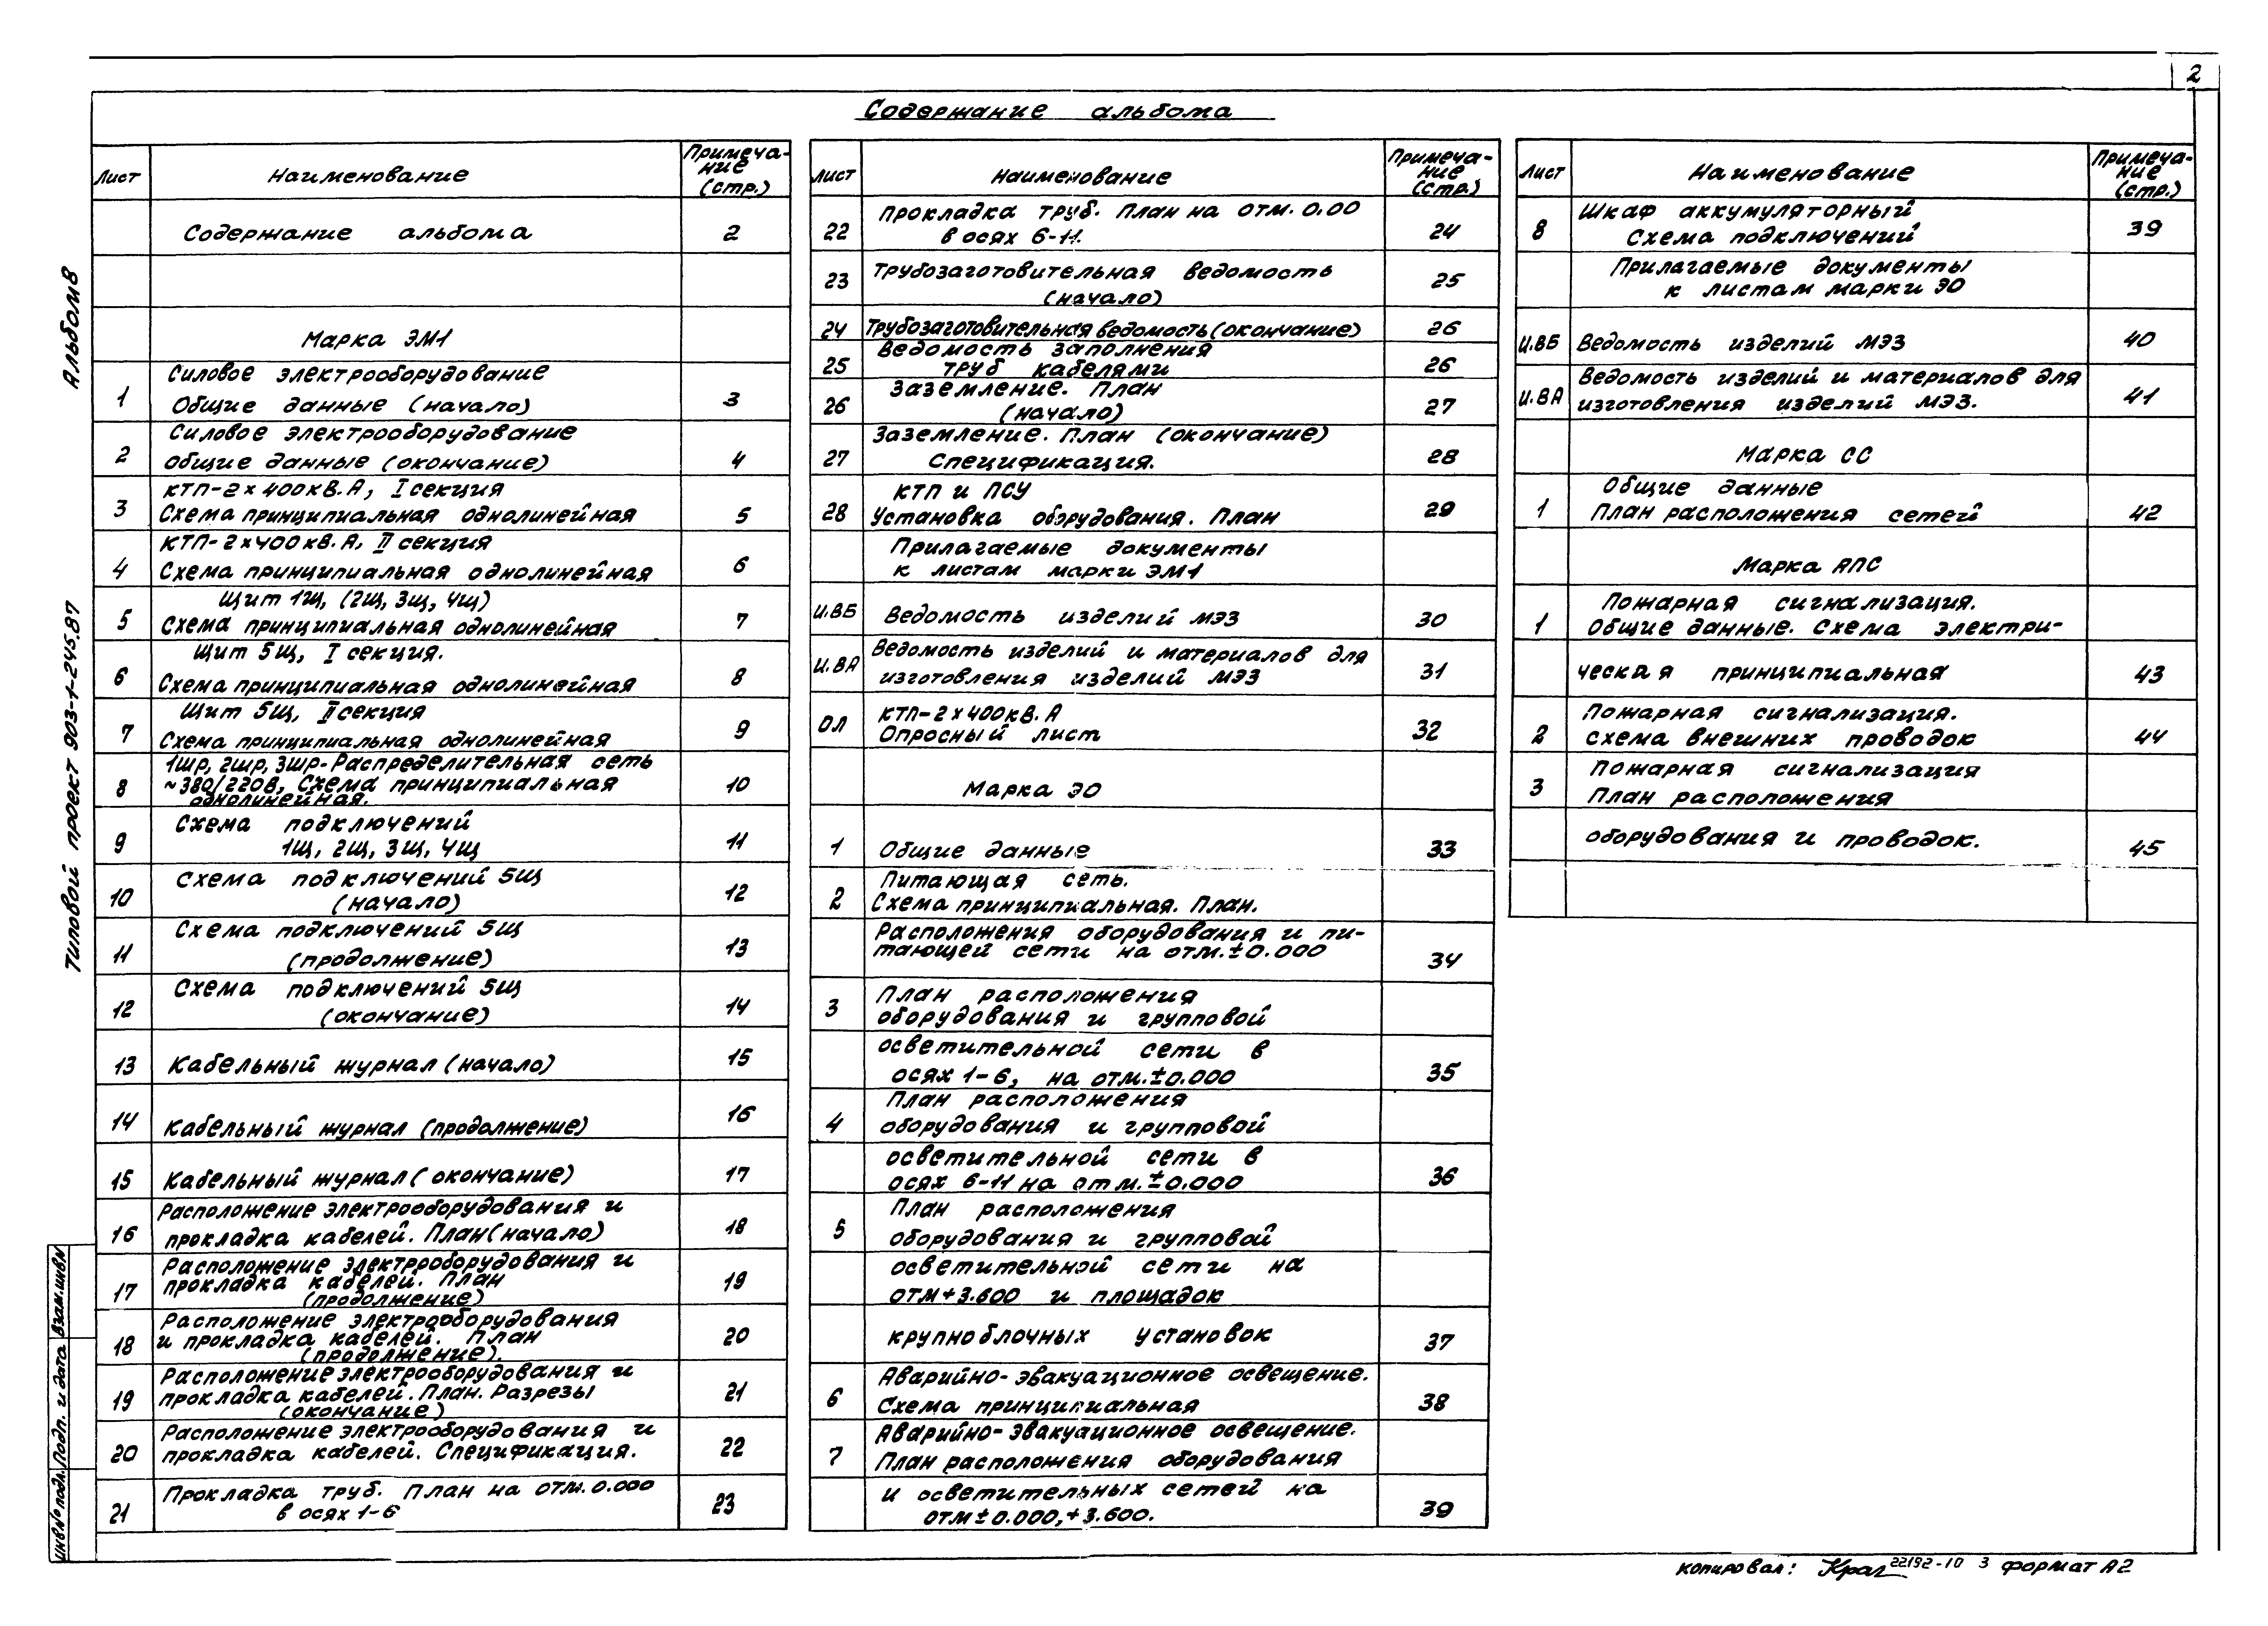 2
Содержание альбома
Лист
Наименование
Примеча-
ние
(стр.)
Содержание альбома 2
Марка ЭМ1
Силовое электрооборудование
1 Общие данные (начало) 3
Силовое электрооборудование
2 Общие данные (окончание) 4
КТП-2×400кВ.А, I секция
3 Схема принципиальная однолинейная 5
КТП-2×400кВ.А, II секция
4 Схема принципиальная однолинейная 6
Щит 1Щ, (2Щ, 3Щ, 4Щ)
5 Схема принципиальная однолинейная 7
Щит 5Щ, I секция.
6 Схема принципиальная однолинейная 8
Щит 5Щ, II секция
7 Схема принципиальная однолинейная 9
1ШР, 2ШР, 3ШР-Распределительная сеть
8 ~380/220В, Схема принципиальная 10
однолинейная.
Схема подключений
9 1Щ, 2Щ, 3Щ, 4Щ 11
Схема подключений 5Щ
10 (начало) 12
Схема подключений 5Щ
11 (продолжение) 13
Схема подключений 5Щ
12 (окончание) 14
13 Кабельный журнал (начало) 15
14 Кабельный журнал (продолжение) 16
15 Кабельный журнал (окончание) 17
Расположение электрооборудования и
16 прокладка кабелей. План (начало) 18
Расположение электрооборудования и
17 прокладка кабелей. План 19
(продолжение)
Расположение электрооборудования
18 и прокладка кабелей. План 20
(продолжение).
Расположение электрооборудования и
19 прокладка кабелей. План. Разрезы 21
(окончание)
Расположение электрооборудования и
20 прокладка кабелей. Спецификация. 22
Прокладка труб. План на отм. 0.000
21 в осях 1-6 23
Лист
Наименование
Примеча-
ние
(стр.)
Прокладка труб. План на отм. 0.00
22 в осях 6-11. 24
Трубозаготовительная ведомость
23 (начало) 25
24 Трубозаготовительная ведомость (окончание) 26
Ведомость заполнения
25 труб кабелями 26
Заземление. План
26 (начало) 27
Заземление. План (окончание)
27 Спецификация. 28
КТП и ПСУ
28 Установка оборудования. План 29
Прилагаемые документы
к листам марки ЭМ1
И.ВБ Ведомость изделий МЭЗ 30
Ведомость изделий и материалов для
И.ВА изготовления изделий МЭЗ 31
КТП-2×400кВ.А
ОЛ Опросный лист 32
Марка ЭО
1 Общие данные 33
Питающая сеть.
2 Схема принципиальная. План.
Расположения оборудования и пи-
тающей сети на отм.±0.000 34
План расположения
3 оборудования и групповой
осветительной сети в
осях 1-6, на отм.±0.000 35
План расположения
4 оборудования и групповой
осветительной сети в
осях 6-11 на отм.±0.000 36
План расположения
5 оборудования и групповой
осветительной сети на
отм+3.600 и площадок
крупноблочных установок 37
Аварийно-эвакуационное освещение.
6 Схема принципиальная 38
Аварийно-эвакуационное освещение.
7 План расположения оборудования
и осветительных сетей на
отм±0.000,+3.600. 39
Лист
Наименование
Примеча-
ние
(стр.)
Шкаф аккумуляторный
8 Схема подключений 39
Прилагаемые документы
к листам марки ЭО
И.ВБ Ведомость изделий МЭЗ 40
Ведомость изделий и материалов для
И.ВА изготовления изделий МЭЗ. 41
Марка СС
Общие данные
1 План расположения сетей 42
Марка АПС
Пожарная сигнализация.
1 Общие данные. Схема электри-
ческая принципиальная 43
Пожарная сигнализация.
2 Схема внешних проводок 44
Пожарная сигнализация
3 План расположения
оборудования и проводок. 45
Альбом 8
Типовой проект 903-1-245.87
Взам.инв.N
Подп. и дата
Инв№ подл.
Копировал: 22192-10 3 формат А2